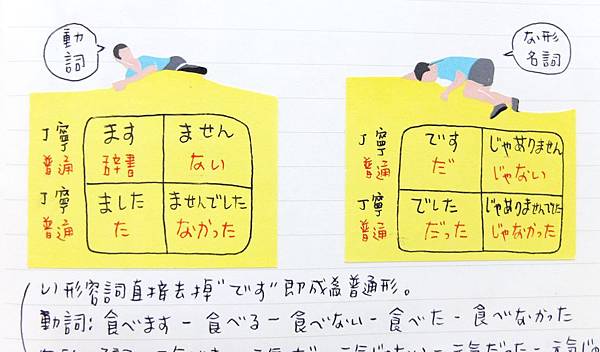 動詞
丁寧 ます ません
普通 辞書 ない
丁寧 ました ませんでした
普通 た なかった
な形
名詞
丁寧 です じゃありません
普通 だ じゃない
丁寧 でした じゃありませんでした
普通 だった じゃなかった
い形容詞直接去掉"です"即成為普通形。
動詞: 食べます - 食べる - 食べない - 食べた - 食べなかった